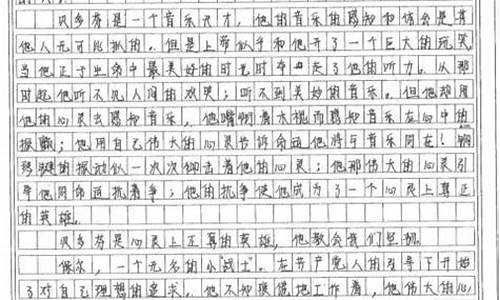 贝多芬是一个音乐天才，他的音乐的感知和体会是其
他人无可比拟的。但是上帝似乎和他开了一个巨大的玩笑，
当他正于生命中最美好的时光时夺走了他的听力。从那
时起他听不见人间的欢笑；听不到美妙的音乐。但他却用
他的心灵去感知音乐，他嘴啣着木棍而感知音乐在心中的
振动；他用自己伟大的心灵告诉命运他将与音乐同在！钢
琴键的振动似一次次的击着他的心灵；他那伟大的心灵引
导他同命运抗着争；他的抗争使他成为了一个心灵上真正
的英雄。
贝多芬是心灵上正真的英雄，他教会我们坚韧。
保尔，一个无名的小“战士”。在共产党人的引导下开始
了对自己理想的追求。他不知疲倦地工作着，他伟大的心